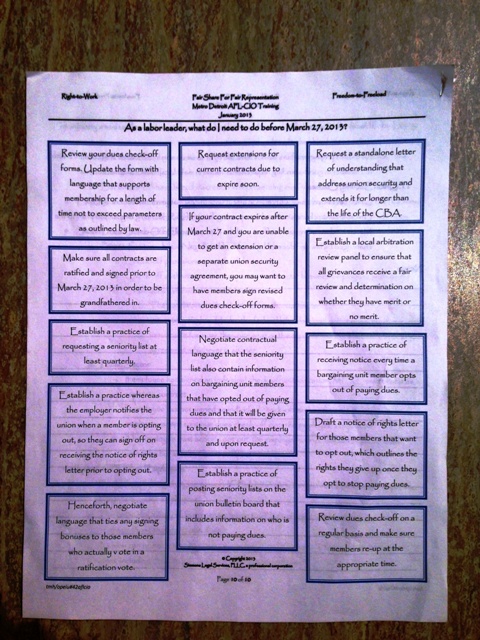 Right-to-Work
Fair Share For Fair Representation
Metro Detroit AFL-CIO Training
January 2013
Freedom-to-Freeload
As a labor leader, what do I need to do before March 27, 2013?
Review your dues check-off
forms. Update the form with
language that supports
membership for a length of
time not to exceed parameters
as outlined by law.
Make sure all contracts are
ratified and signed prior to
March 27, 2013 in order to be
grandfathered in.
Establish a practice of
requesting a seniority list at
least quarterly.
Establish a practice whereas
the employer notifies the
union when a member is opting
out, so they can sign off on
receiving the notice of rights
letter prior to opting out.
Henceforth, negotiate
language that ties any signing
bonuses to those members
who actually vote in a
ratification vote.
Request extensions for
current contracts due to
expire soon.
If your contract expires after
March 27 and you are unable
to get an extension or a
separate union security
agreement, you may want to
have members sign revised
dues check-off forms.
Negotiate contractual
language that the seniority
list also contain information
on bargaining unit members
that have opted out of paying
dues and that it will be given
to the union at least quarterly
and upon request.
Establish a practice of
posting seniority lists on the
union bulletin board that
includes information on who is
not paying dues.
Request a standalone letter
of understanding that
address union security and
extends it for longer than
the life of the CBA.
Establish a local arbitration
review panel to ensure that
all grievances receive a fair
review and determination on
whether they have merit or
no merit.
Establish a practice of
receiving notice every time a
bargaining unit member opts
out of paying dues.
Draft a notice of rights letter
for those members that want
to opt out, which outlines the
rights they give up once they
opt to stop paying dues.
Review dues check-off on a
regular basis and make sure
members re-up at the
appropriate time.
© Copyright 2013
Simmons Legal Services, PLLC, a professional corporation
Page 10 of 10